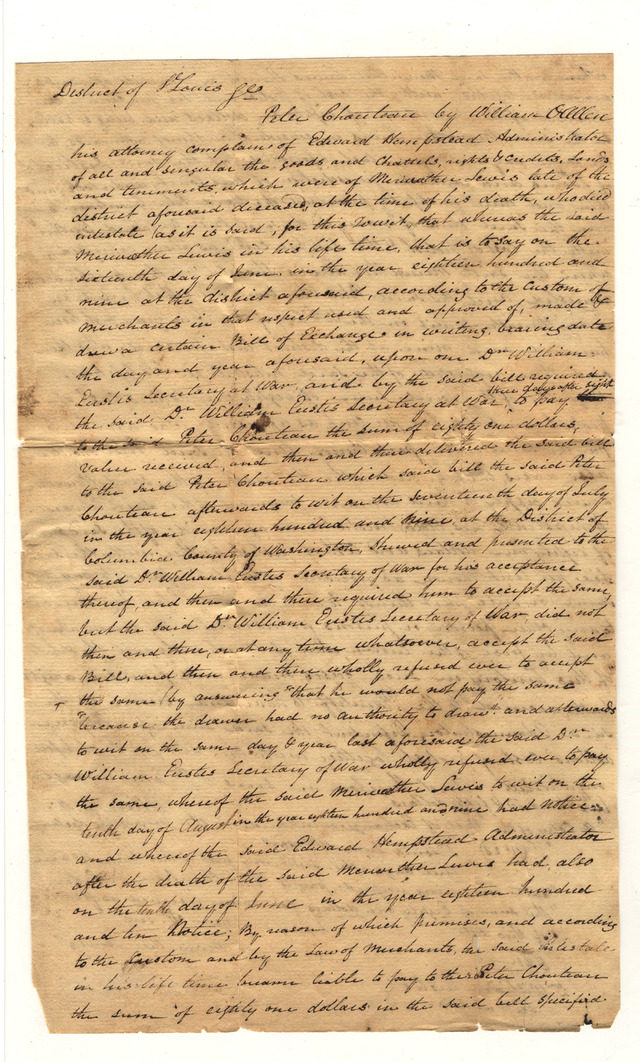 District of St Louis Sct
Peter Chouteau by William C Allen
his attorney complains of Edward Hempstead Administrator
of all and singular the goods and Chattels, rights & credits, Lands
and tenements, which were of Meriwether Lewis late of the
district aforesaid diceased, at the time of his death, who died
intestate (as it is said, for this Towit, that whereas the said
Meriwether Lewis in his life time, that is to say on the
sixteenth day of June in the year eighteen hundred and
nine at the district aforesaid, according to the custom of
Merchants in that respect used and approved of, made &
drew a certain Bill of Exchange in writing, bearing date
the day and year aforesaid, upon one Dr William
Eustis Secretary at War, and by the said bill required
three days after sight
the said Dr William Eustis Secretary at War, to pay
to the said Peter Chouteau the sum of eighty one dollars,
value received, and then and there delivered the said bill
to the said Peter Chouteau which said bill the said Peter
Chouteau afterwards to wit on the seventeenth day of July
in the year eighteen hundred and nine, at the District of
Columbia County of Washington, Shewed and presented to the
said Dr William Eustis Secretary of War for his acceptance
thereof, and then and there required him to accept the same,
but the said Dr William Eustis Secretary of War, did not
then and there, or at any time whatsoever, accept the said
Bill, and then and there wholly refused ever to accept
the same (by answering "that he would not pay the same
"because the drawer had no authority to draw". and afterwards
to wit on the same day & year last aforesaid the said Dr
William Eustis Secretary of War wholly refused ever to pay
the same, whereof the said Meriwether Lewis to wit on the
tenth day of August in the year eighteen hundred and nine had Notice:
and whereof the said Edward Hempstead Administrator
after the death of the said Meriwether Lewis had also
on the tenth day of June in the year eighteen hundred
and ten Notice; By reason of which premises, and according
to the Custom and by the Law of Merchants, the said intestate
in his life time became liable to pay to the Peter Chouteau
the sum of eighty one dollars in the said bill specified